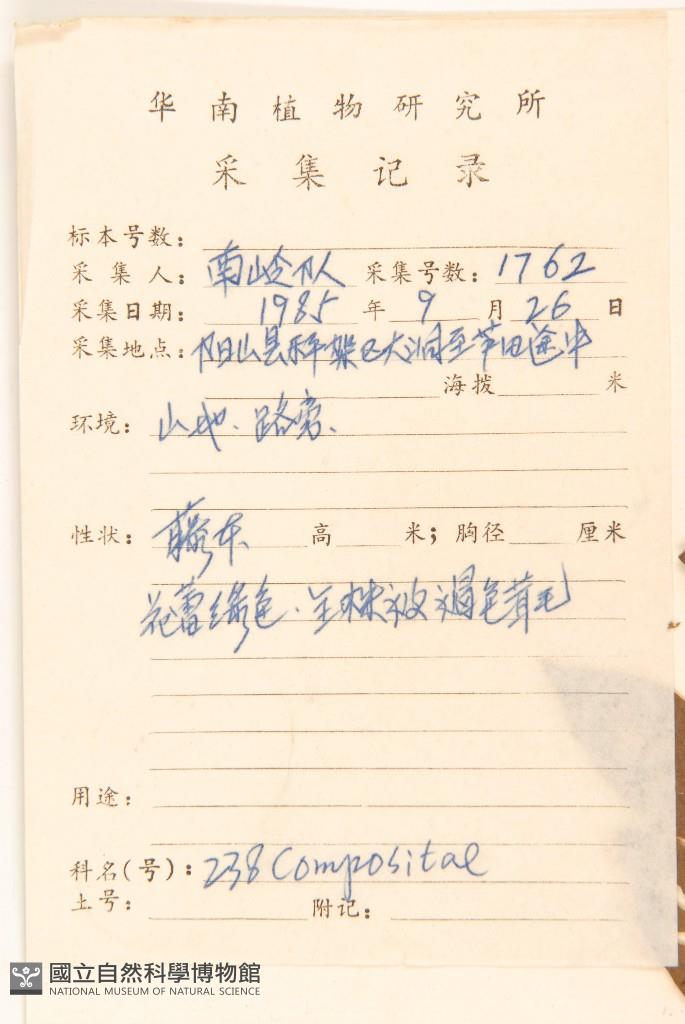 华南植物研究所
采集记录
标本号数：
采集人：南岭队 采集号数：1762
采集日期：1985年9月26日
采集地点：阳山县秤架区大洞至茅田途中
海拨 米
环境：山地、路旁、
性状：藤本 高 米；胸径 厘米
花蕾绿色、全株被褐色茸毛
用途：
科名(号)：238 Compositae
土号： 附记：
國立自然科學博物館
NATIONAL MUSEUM OF NATURAL SCIENCE